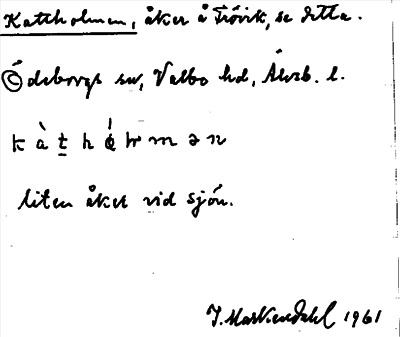 Kattholmen, åker å Trövik, se detta.
Ödeborgs sn, Valbo hd, Älvsb. l.
k à t h ó w m ə n
liten åker vid sjön.
1961